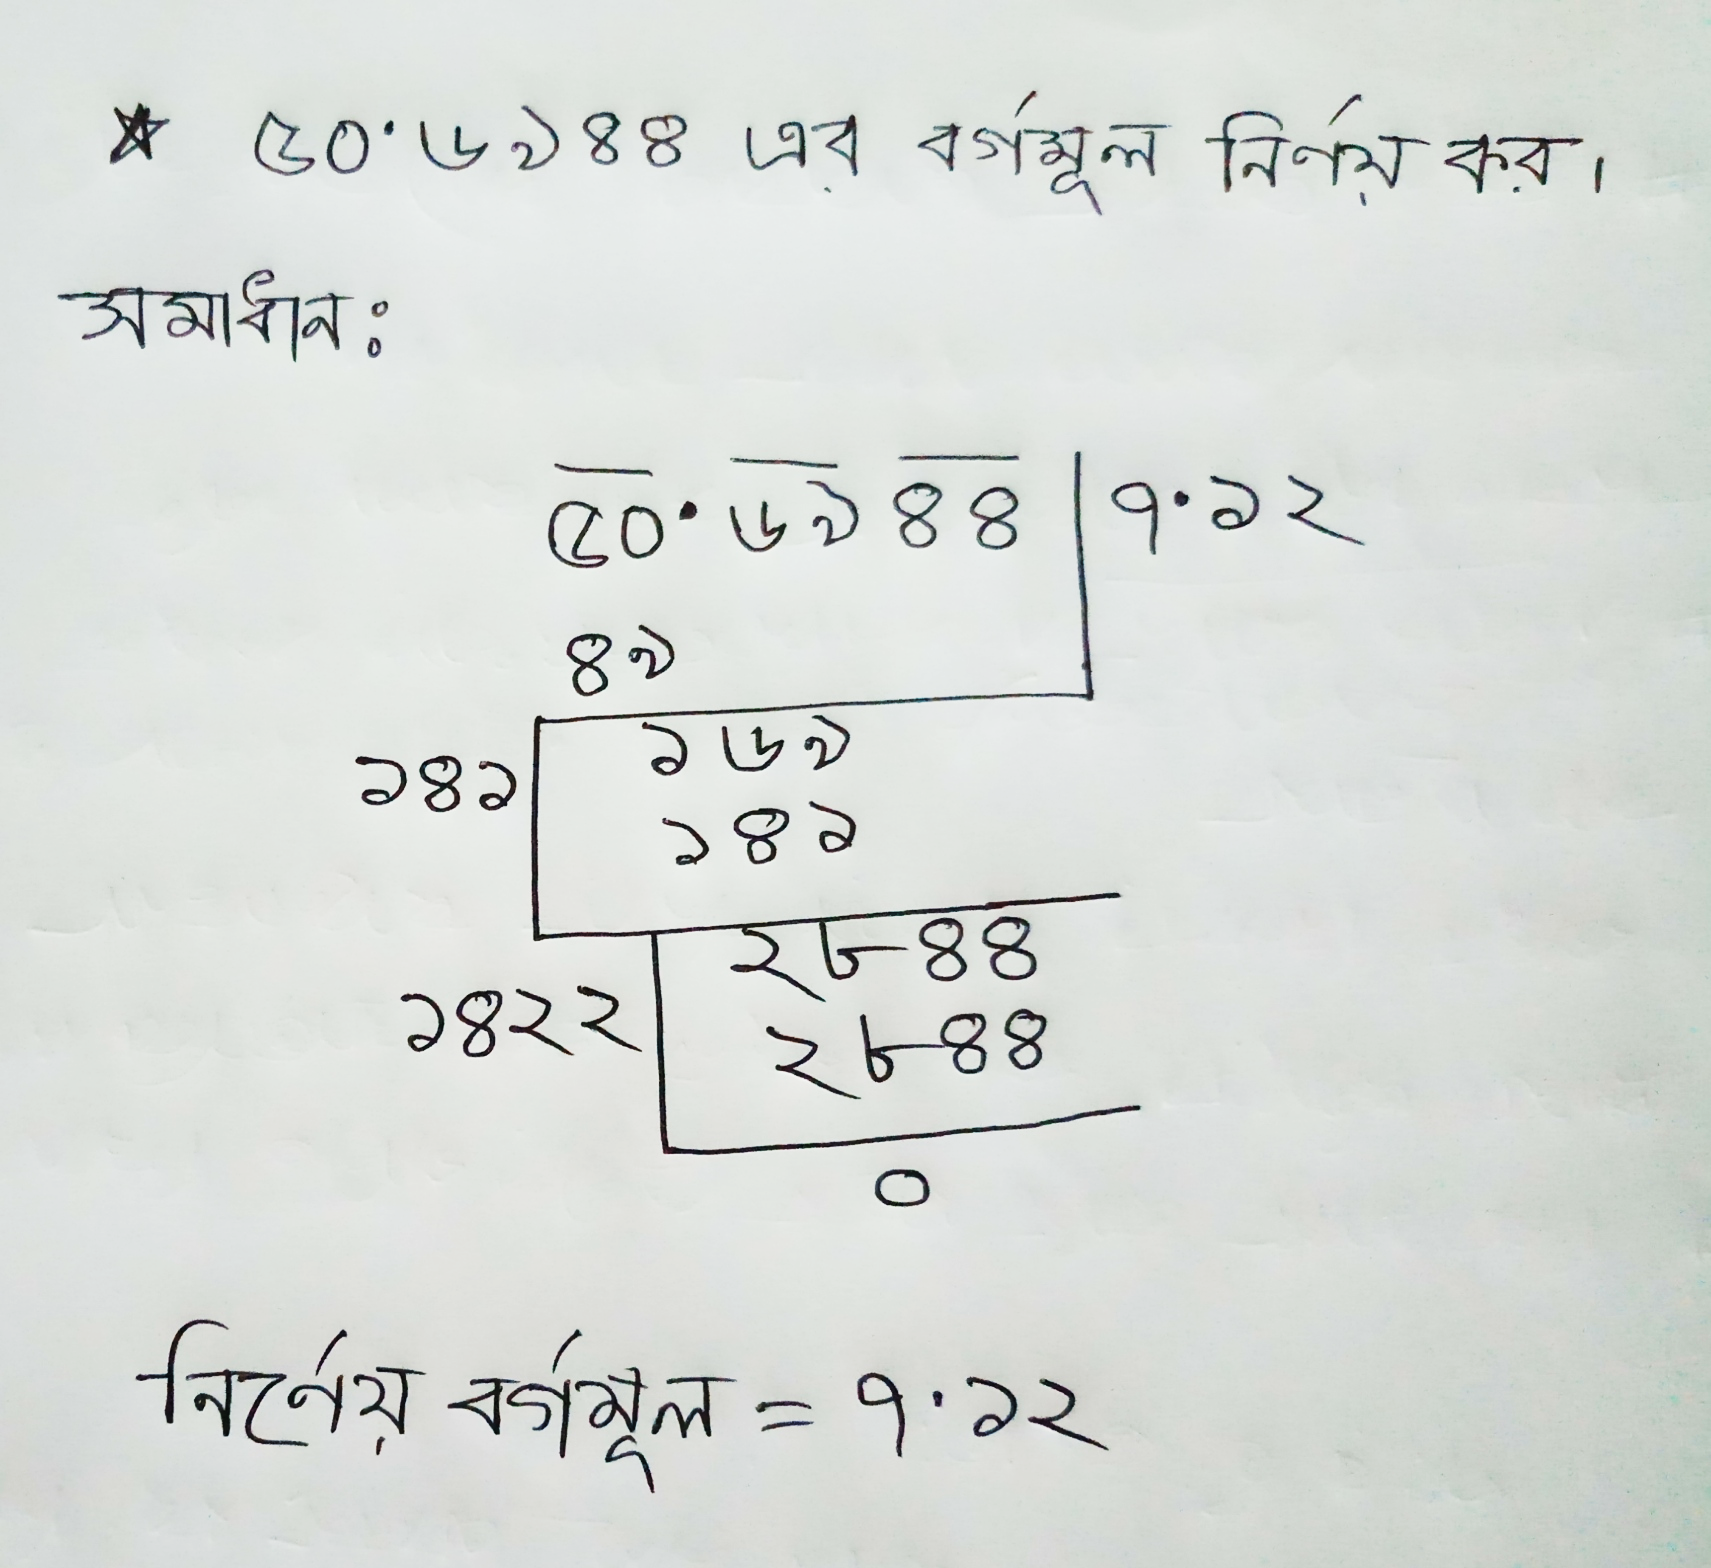 * ৫০.৬৯৪৪ এর বর্গমূল নির্ণয় কর।
সমাধান:
৫০.৬৯৪৪ | ৭.১২
৪৯
১৬৯
১৪১
১৪১
২৮৪৪
১৪২২
২৮৪৪
০
নির্ণেয় বর্গমূল = ৭.১২